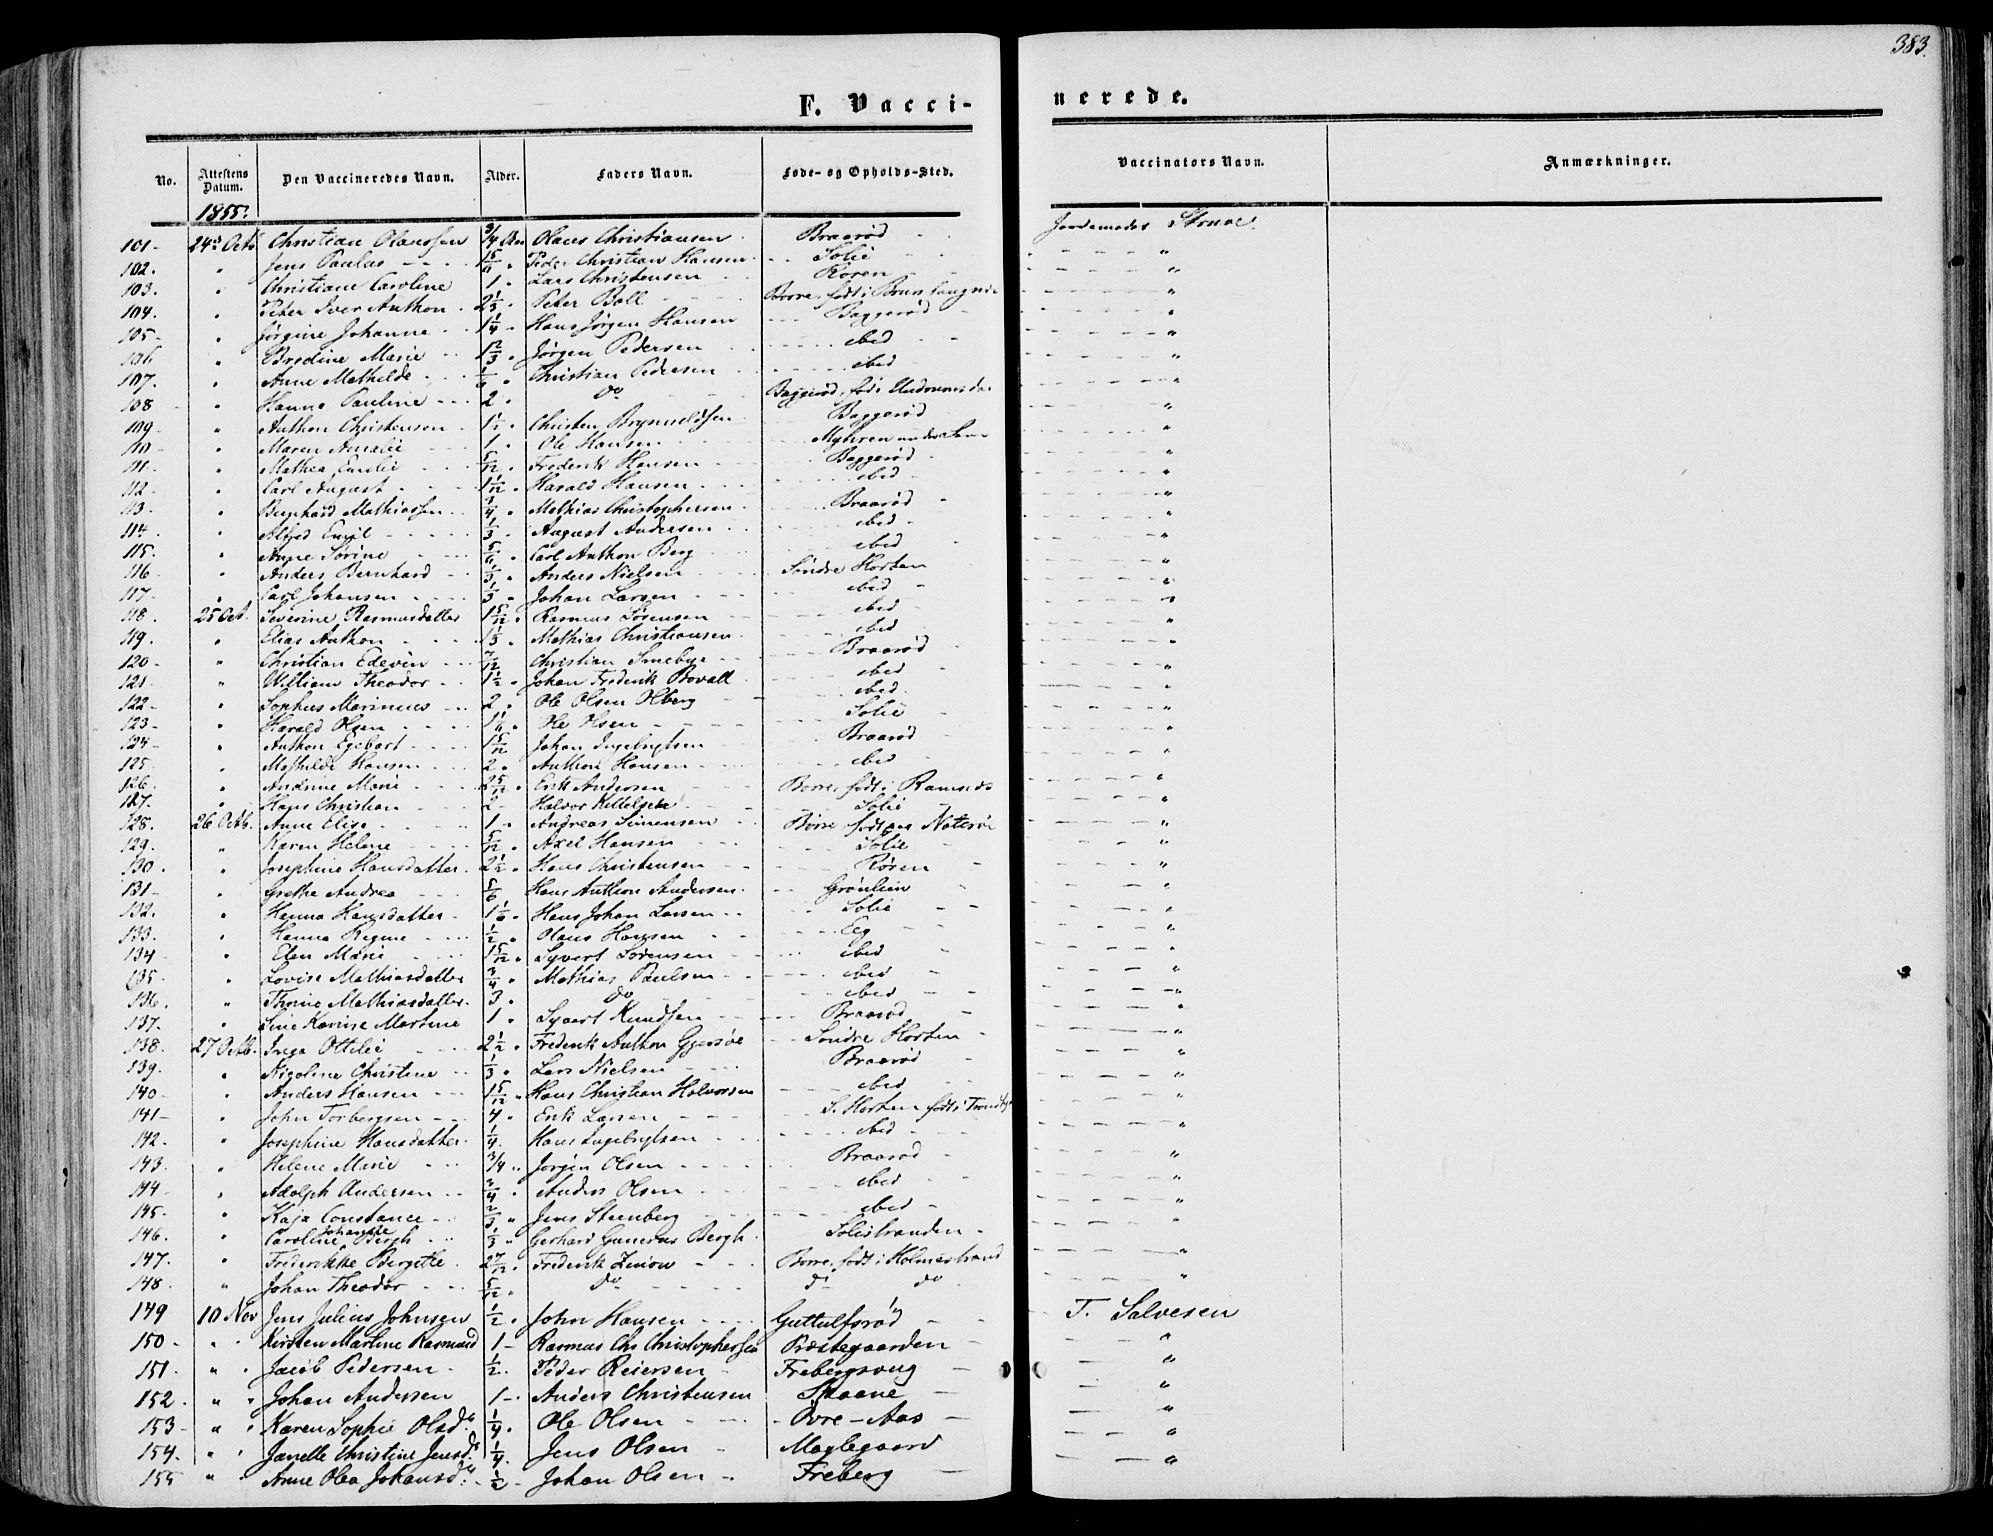 383.
F. Vacci-
nerede.
No. Attestens Datum. Den Vaccineredes Navn. Alder. Faders Navn. Føde- og Opholds-Sted. Vaccinators Navn. Anmærkninger.
1855.
101 - 24de Octb Christian Olaussen 3/4 Olaus Christiansen Braarød Jordemoder Struve
102. " Jens Paulus 5/6 " Peder Christian Hansen Solie "
103. " Christiane Caroline 1 " Lars Christensen Roren "
104. " Peter Iver Anthon 2 1/3 " Peter Boll Borre, født i "
105 - " Jørgine Johanne 1 1/4 - Hans Jørgen Hansen Baggerød "
106 " Bredine Marie 1 2/3 " Jørgen Pedersen ibid "
107. " Anne Mathilde " Christian Pedersen ibid "
108 " Hanna Pauline 2 " do Baggerød, født "
109 - " Anthon Christensen 1 1/2 " Christen Brynildsen Baggerød "
110 - " Maren Amalie 1 " Ole Hansen "
111 - " Mathea Emilie 5/12 " Frederik Hansen Baggerød "
112 - " Carl August 1 1/12 " Harald Hansen ibid "
113. " Bernhard Mathiassen 3/4 " Mathias Christophersen Braarød "
114 - " Alfred Emil 1/3 " August Andersen ibid "
115. " Anne Sørine 5/6 " Carl Anthon Berg ibid "
116 - " Anders Bernhard 1/3 " Anders Nielsen Søndre Horten "
117 - " Carl Johansen 1/3 " Johan Larsen ibid "
118. 25 Oct. Severine Rasmusdatter 1 5/12 " Rasmus Sørensen ibid "
119. " Elias Anthon 1 1/3 " Mathias Christiansen ibid "
120 - " Christian Edevin 7/12 Christian Smebye Braarød "
121 - " William Theodor 1 1/2 " Johan Frederik Bovall ibid "
122 - " Sophus Marinius 2 " Ole Olsen Olberg ibid "
123 - " Harald Olsen 1 1/6 " Ole Olsen Solie "
124 - " Anthon Egebert 1 5/12 Johan Ingebrigtsen Braarød "
125 " Mathilde Hansen 2 " Anthon Hansen ibid "
126. " Andrine Marie 2 5/12 " Erik Andersen Borre, født i Ramnæs "
127. " Hans Christian 2 - Halvor Kittelsen Solie "
128. 26 Octb. Anne Elise 1 " Andreas Simensen Borre født paa Nøtterøe "
129. " Karen Helene 5/12 " Axel Hansen Solie "
130. " Josephine Hansdatter 2 1/2 " Hans Christensen Røren "
131 - " Grethe Andrea 5/6 Hans Anthon Andersen Grønlien "
132. " Hanna Hansdatter 1 1/6 " Hans Johan Larsen Solie "
133. " Hanna Regine 1/2 " Olaus Hansen Eeg "
134 " Elen Marie 1 5/12 " Syvert Sørensen ibid "
135 - " Lovise Mathiasdatter 3/4 " Mathias Paulsen ibid "
136. " Thrine Mathiasdatter 3 " do ibid "
137. " Line Karine Martine 1 " Syvert Knudsen Braarød "
138. 27 Octb. Inga Ottilie 2 1/2 " Frederik Anthon Gjersøe Søndre Horten "
139. " Nicoline Christine 1/3 " Lars Nielsen Braarød "
140 - " Anders Hansen 1 5/12 " Hans Christian Halvorsen ibid "
141 - " John Torbergsen 4 " Erik Larsen S. Horten født i "
142. " Josephine Hansdatter 1/4 Hans Ingebrigtsen ibid "
143. " Helene Marie 3/4 " Jørgen Olsen Braarød "
144 - " Adolph Andersen 3/4 " Anders Olsen ibid "
145 - " Kaja Constance 2/3 " Jens Steenberg ibid "
146. " Caroline Johanne Bergh 1/3 " Gerhard Gunerus Bergh Soliestranden "
147. " Frederikke Birgitte 2 7/12 " Frederik Zeiow Borre, født i Holmestrand "
148. " Johan Theodor 5/12 " do do do "
149 10 Nov Jens Julius Johnsen 1/2 " John Hansen Guttulfsrød T. Salvesen
150 - " " Kirsten Martine Rasmusd 1 - Rasmus Chr Christophersen Præstegaarden "
151 - " " Jacob Pedersen 1/2 " Peder Reiersen Frebergsvng "
152. " " Johan Andersen 1 - Anders Christensen Skaane "
153 - " " Karen Sophie Olsdr 1/4 " Ole Olsen Øvre-Aas "
154. " " Janette Christine Jensdr 1/4 Jens Olsen Maglegaard "
155 " " Anne Olea Johansdr 1/2 - Johan Olsen Freberg "